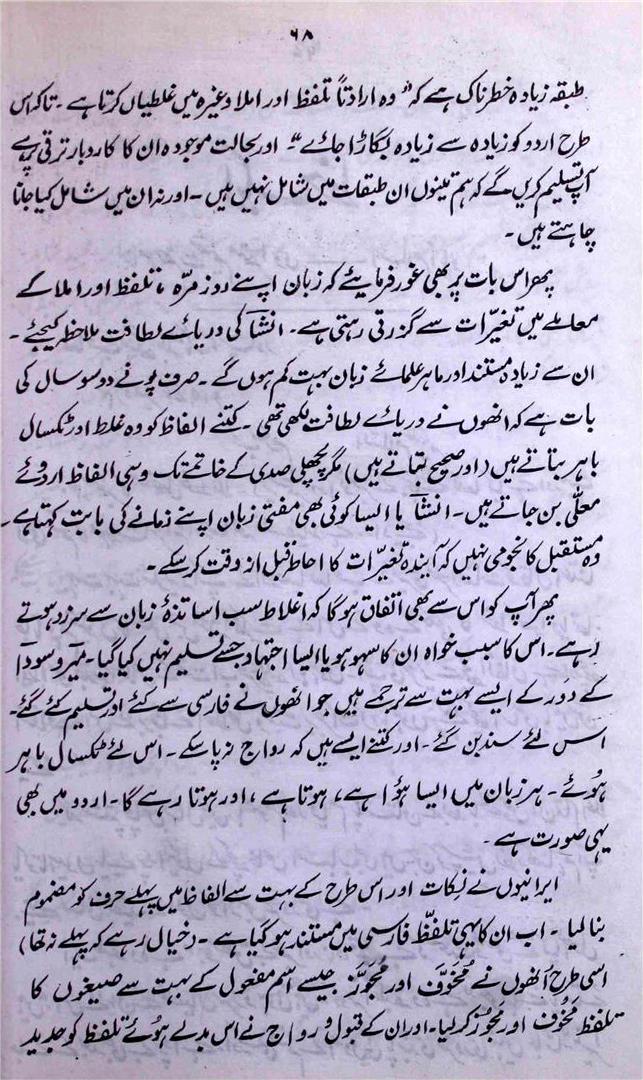 ۶۸
طبقہ زیادہ خطرناک ہے کہ "وہ ارادتاً تلفظ اور املا وغیرہ میں غلطیاں کرتا ہے۔ تاکہ اس
طرح اردو کو زیادہ سے زیادہ بگاڑا جائے"۔ اور بحالت موجودہ ان کا کاروبار ترقی پر ہے
آپ تسلیم کریں گے کہ ہم تینوں ان طبقات میں شامل نہیں ہیں۔ اور نہ ان میں شامل کیا جانا
چاہتے ہیں۔
پھر اس بات پر بھی غور فرمائیے کہ زبان اپنے روزمرّہ، تلفظ اور املا کے
معاملے میں تغیّرات سے گزرتی رہتی ہے۔ انشآ کی دریائے لطافت ملاحظہ کیجئے۔
ان سے زیادہ مستند اور ماہر علمائے زبان بہت کم ہوں گے۔ صرف پونے دو سو سال کی
بات ہے کہ انھوں نے دریائے لطافت لکھی تھی۔ کتنے الفاظ کو وہ غلط اور ٹکسال
باہر بتاتے ہیں (اور صحیح بتاتے ہیں) مگر پچھلی صدی کے خاتمے تک وہی الفاظ اردوئے
معلّٰی بن جاتے ہیں۔ انشآ یا ایسا کوئی بھی مفتی زبان اپنے زمانے کی بابت کہتا ہے۔
وہ مستقبل کا نجومی نہیں کہ آیندہ تغیّرات کا احاطہ قبل از وقت کر سکے۔
پھر آپ کو اس سے بھی اتفاق ہوگا کہ اغلاط سب اساتذۂ زبان سے سرزد ہوتے
رہے۔ اس کا سبب خواہ ان کا سہو ہو یا ایسا اجتہاد جسے تسلیم نہیں کیا گیا۔ میر و سودا
کے دَور کے ایسے بہت سے ترجمے ہیں جو انھوں نے فارسی سے کئے اور تسلیم کئے گئے۔
اس لئے سند بن گئے۔ اور کتنے ایسے ہیں کہ رواج نہ پا سکے۔ اس لئے ٹکسال باہر
ہوئے۔ ہر زبان میں ایسا ہؤا ہے، ہوتا ہے، اور ہوتا رہے گا۔ اردو میں بھی
یہی صورت ہے۔
ایرانیوں نے نِکات اور اس طرح کے بہت سے الفاظ میں پہلے حرف کو مضموم
بنا لیا۔ اب ان کا یہی تلفّظ فارسی میں مستند ہو گیا ہے۔ (خیال رہے کہ پہلے نہ تھا)
اسی طرح اُنھوں نے مُخَوَّف اور مُجَوَّز جیسے اسم مفعول کے بہت سے صیغوں کا
تلفظ مَخُوف اور مَجُوز کر لیا۔ اور ان کے قبول و رواج نے اس بدلے ہوئے تلفظ کو جدید